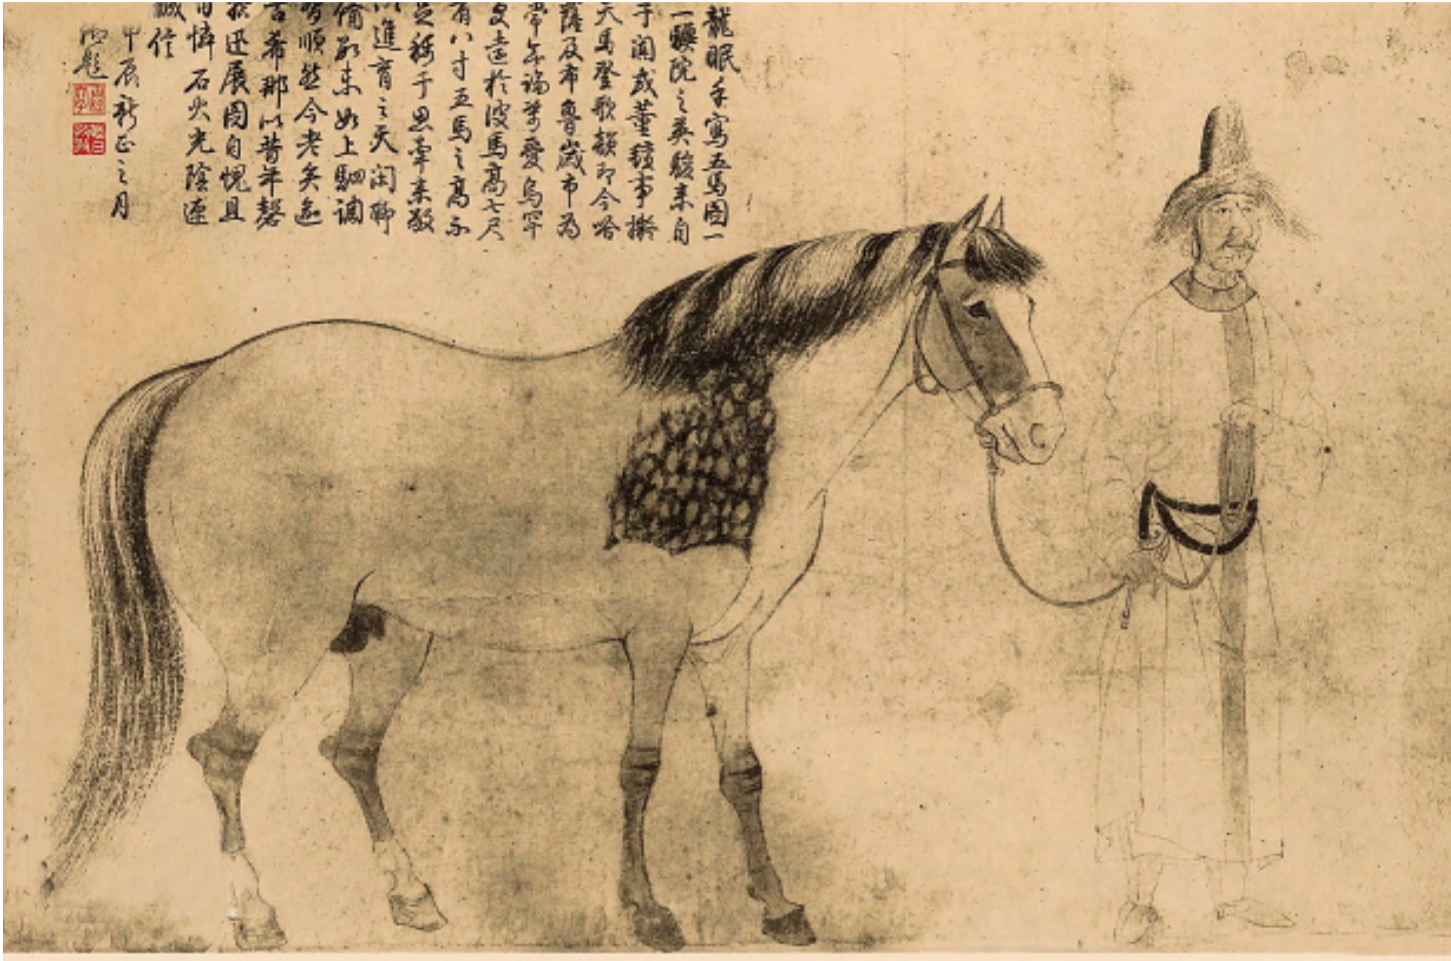 龍眠手寫五馬圖一
一驥院之英駿來自
于闐或董氊事擬
天馬登歌額即今哈
薩及布魯歲市為
常年論幣愛烏罕
更遠於波馬高七尺
有八寸五馬之高亦
稱于思牽來敬
以進育之天閑聊
備數未如上駟調
習順然今老矣逾
古希那以昔年磬
還展圖自愧且
自憐石火光陰速
誠佳
甲辰新正之月
御題